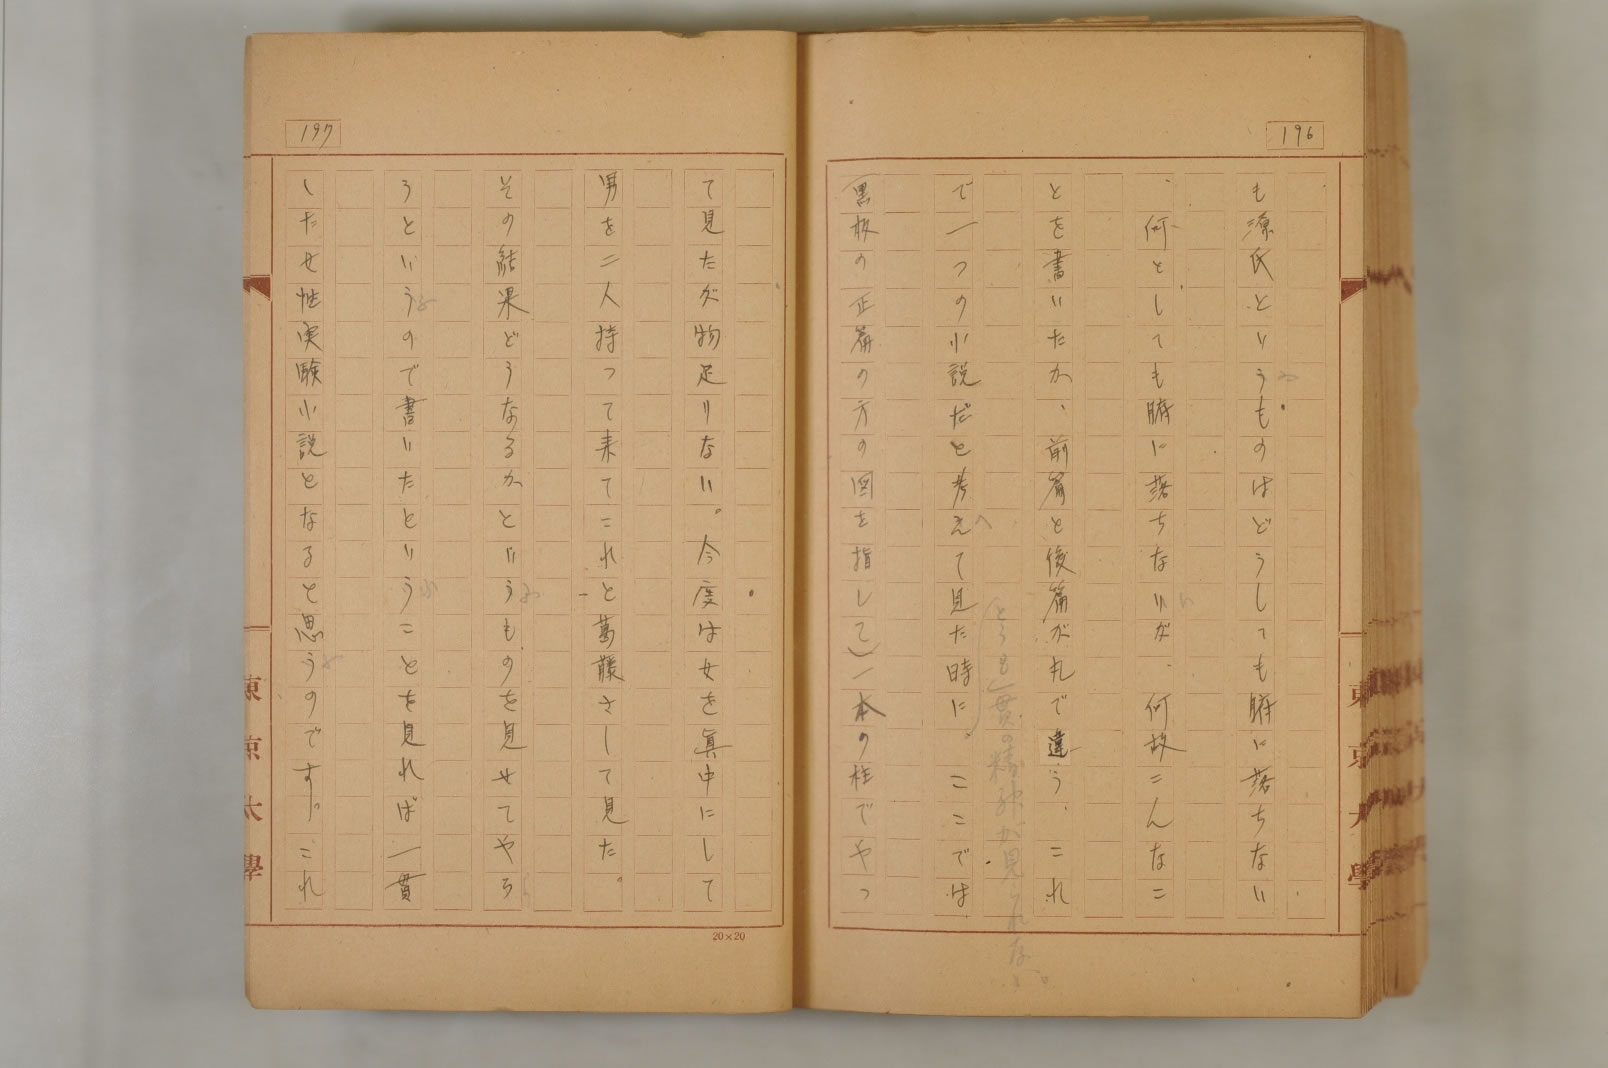 196
も源氏というものはどうしても腑に落ちない
、何としても腑に落ちないが、何故こんなこ
とを書いたか、前篇と後篇が丸で違う、これ
で一つの小説だと考えて見た時に。ここでは
どうも一貫の精神が見られない。
黒板の正篇の方の図を指して)一本の柱でやつ
東京大學
197
て見たが物足りない。今度は女を眞中にして
男を二人持って来てこれと葛藤さして見た。
その結果どうなるかというものを見せてやろ
うというので書いたということを見れば一貫
した性実験小説となると思うのです。これ
東京大學
20×20